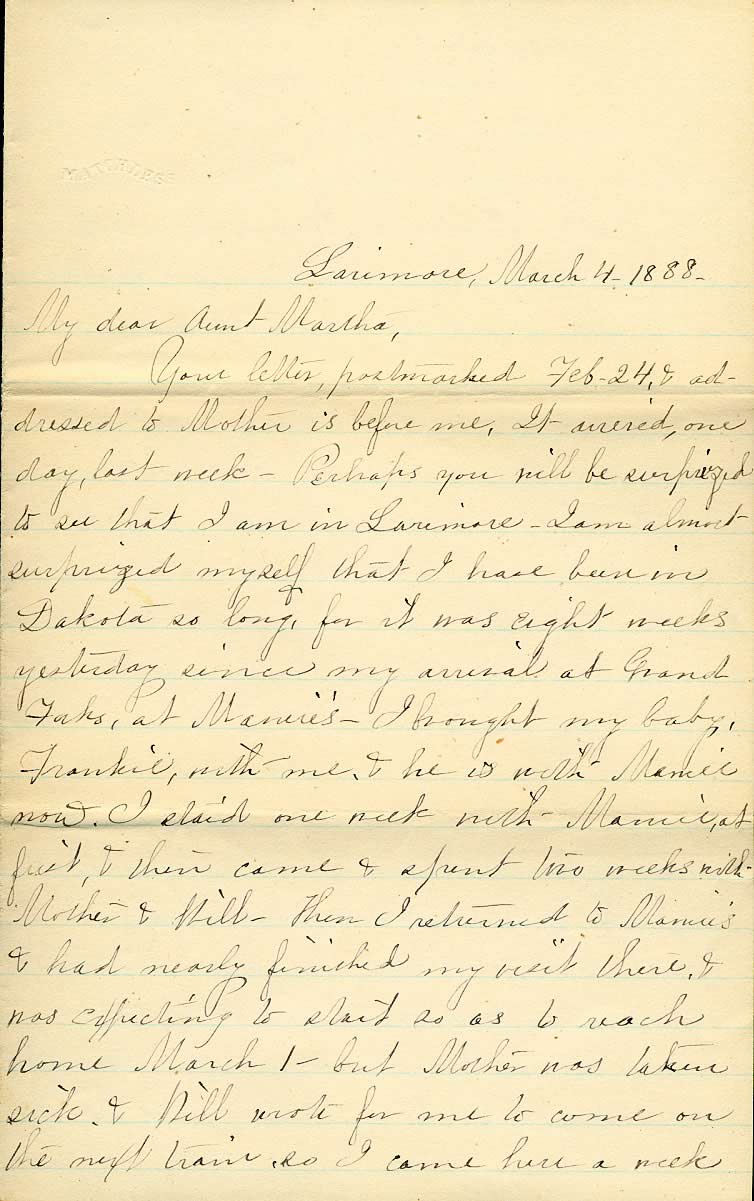 Larimore, March 4 - 1888 -
My dear Aunt Martha,
Your letter, postmarked Feb - 24, & ad-
dressed to Mother is before me. It arrived, one
day, last week - Perhaps you will be surprized
to see that I am in Larimore - I am almost
surprized myself that I have been in
Dakota so long, for it was eight weeks
yesterday since my arrival at Grand
Forks, at Mamie's - I brought my baby,
Frankie, with me, & he is with Mamie
now. I staid one week with Mamie, at
first, & then came & spent two weeks with
Mother & Will - then I returned to Mamie's
& had nearly finished my visit there, &
was expecting to start so as to reach
home March 1 - but Mother was taken
sick, & Will wrote for me to come on
the next train, so I came here a week